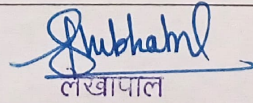 Shubham
लेखापाल